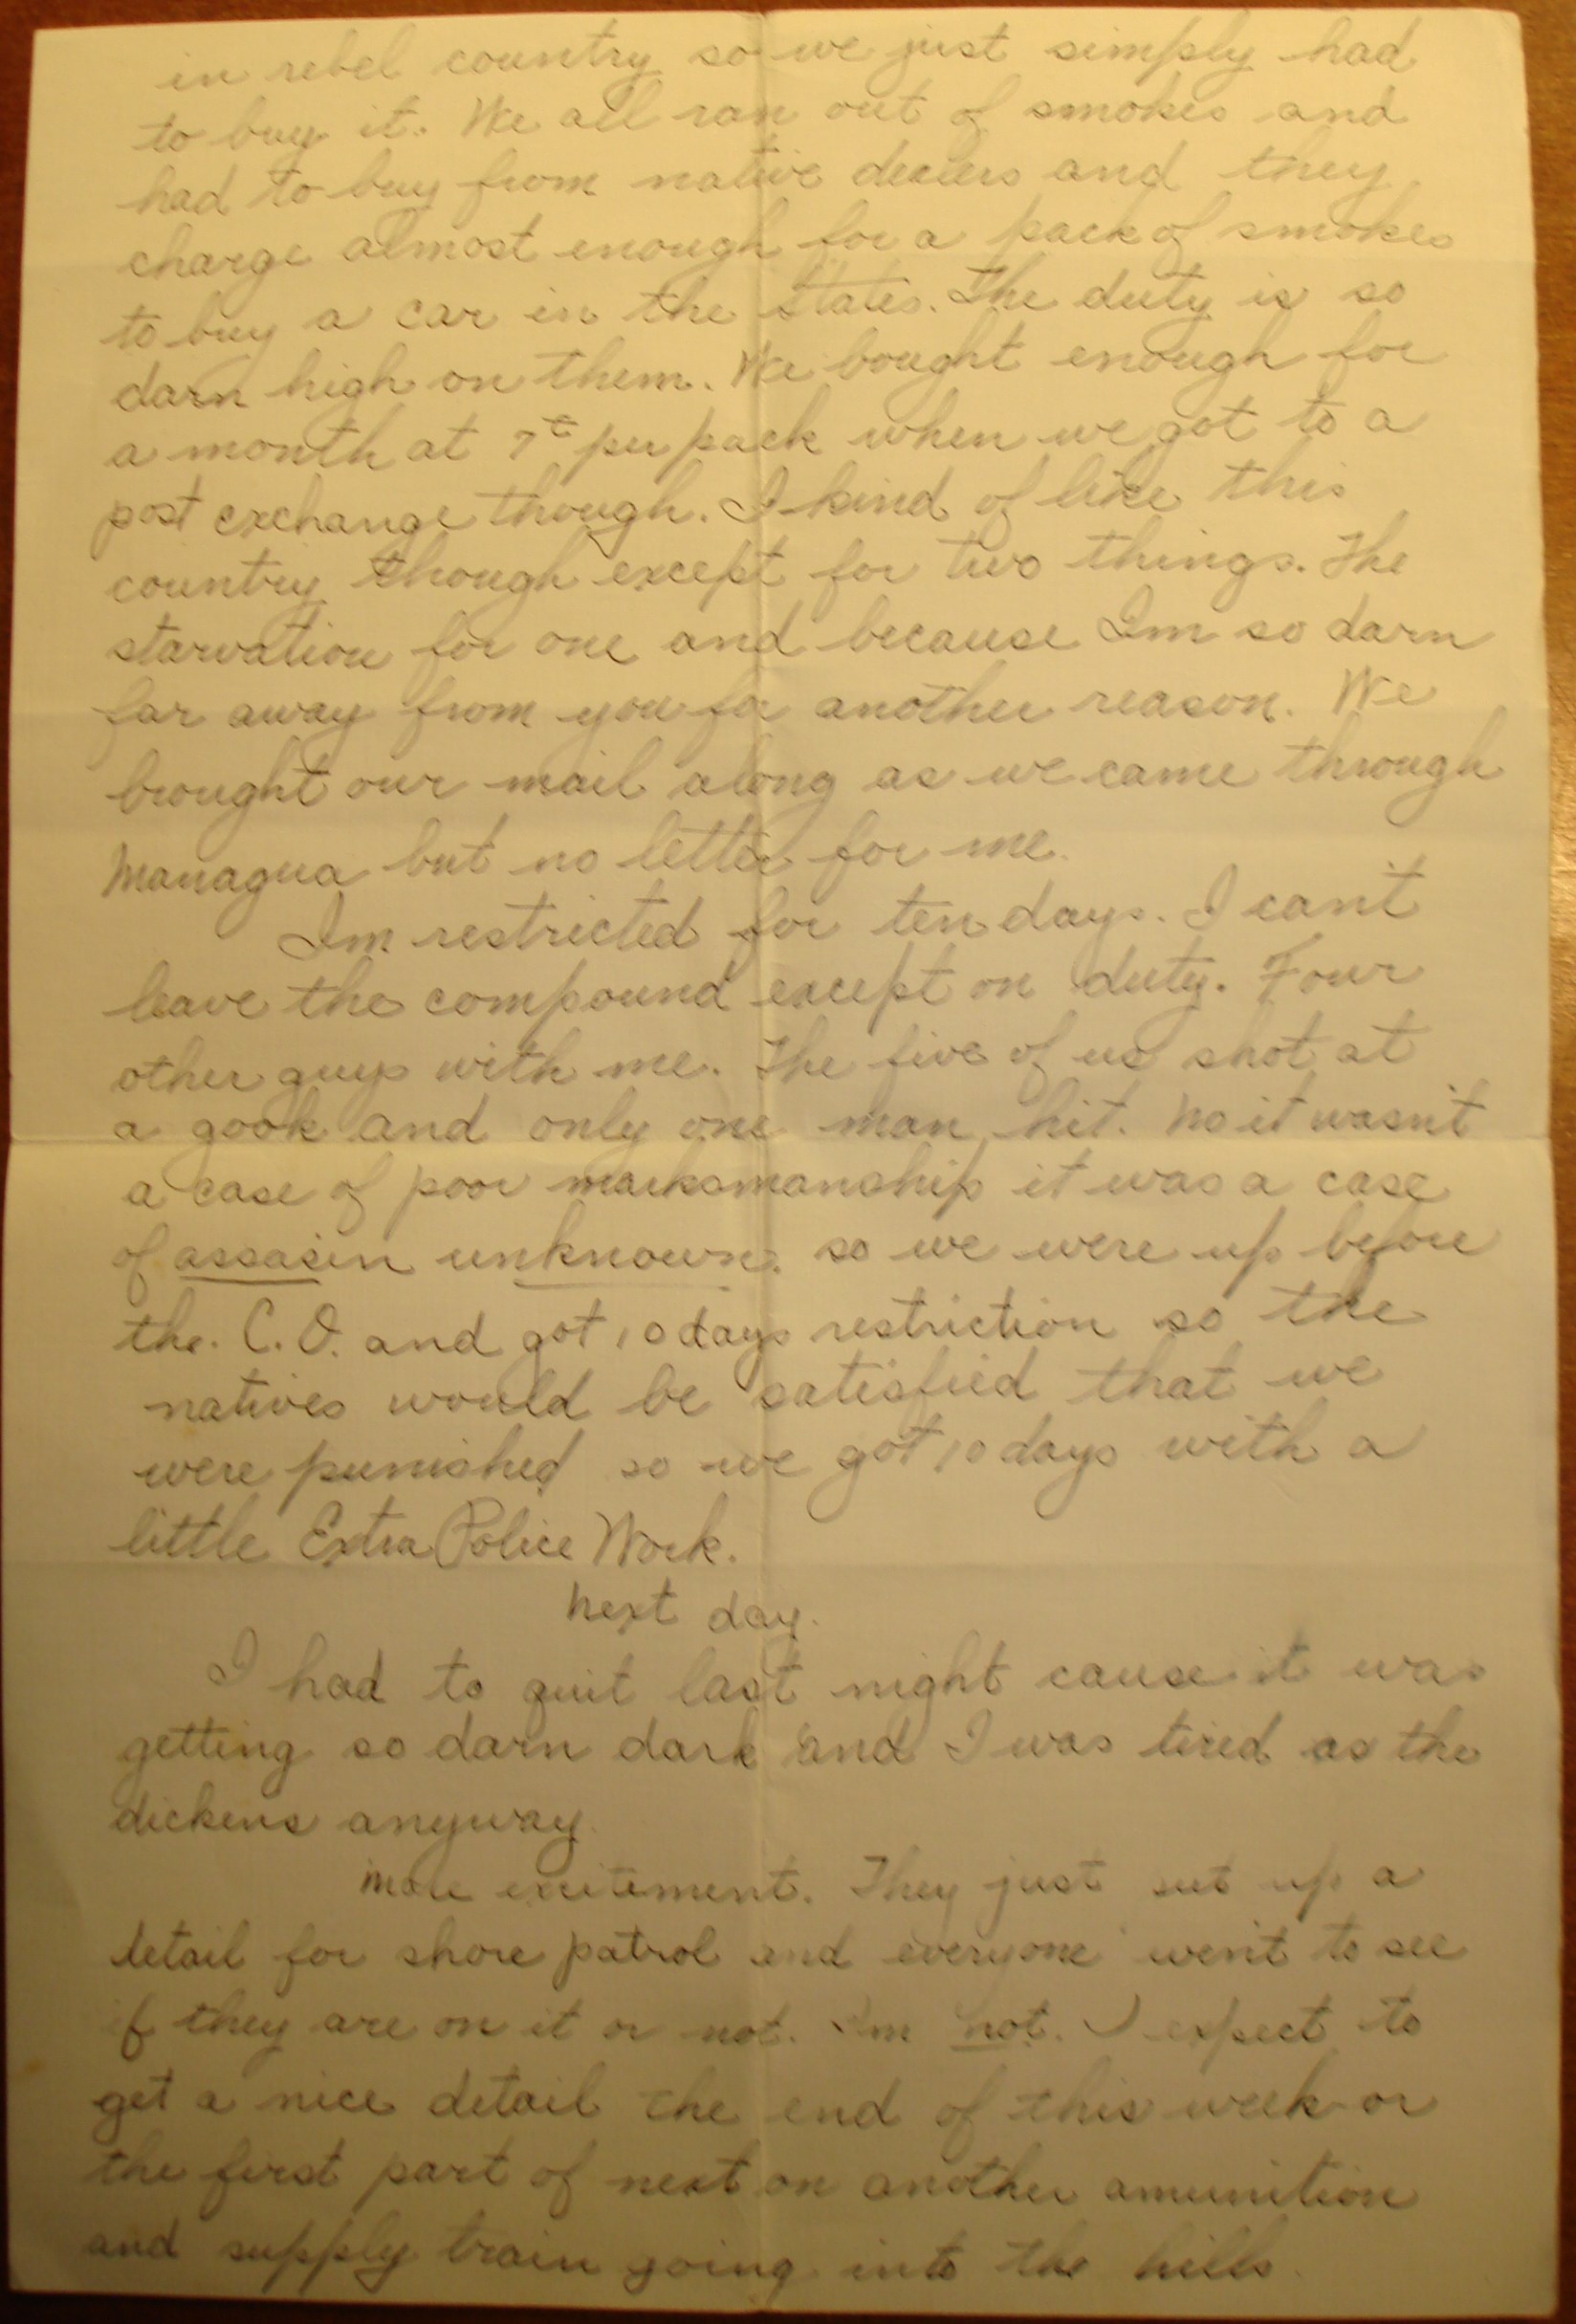 in rebel country so we just simply had
to buy it. We all ran out of smokes and
had to buy from native dealers and they
charge almost enough for a pack of smokes
to buy a car in the states. The duty is so
darn high on them. We bought enough for
a month at 7¢ per pack when we got to a
post exchange though. I kind of like this
country though except for two things. The
starvation for one and because Im so darn
far away from you for another reason. We
brought our mail along as we came through
Managua but no letter for me.
Im restricted for ten days. I can't
leave the compound except on duty. Four
other guys with me. The five of us shot at
a gook and only one man hit. No it wasn't
a case of poor marksmanship it was a case
of assasin unknown. so we were up before
the. C.O. and got 10 days restriction so the
natives would be satisfied that we
were punished so we got 10 days with a
little Extra Police Work.
Next day.
I had to quit last night cause it was
getting so darn dark and I was tired as the
dickens anyway.
More excitement. They just set up a
detail for shore patrol and everyone went to see
if they are on it or not. I'm not. I expect to
get a nice detail the end of this week or
the first part of next on another amunition
and supply train going into the hills.